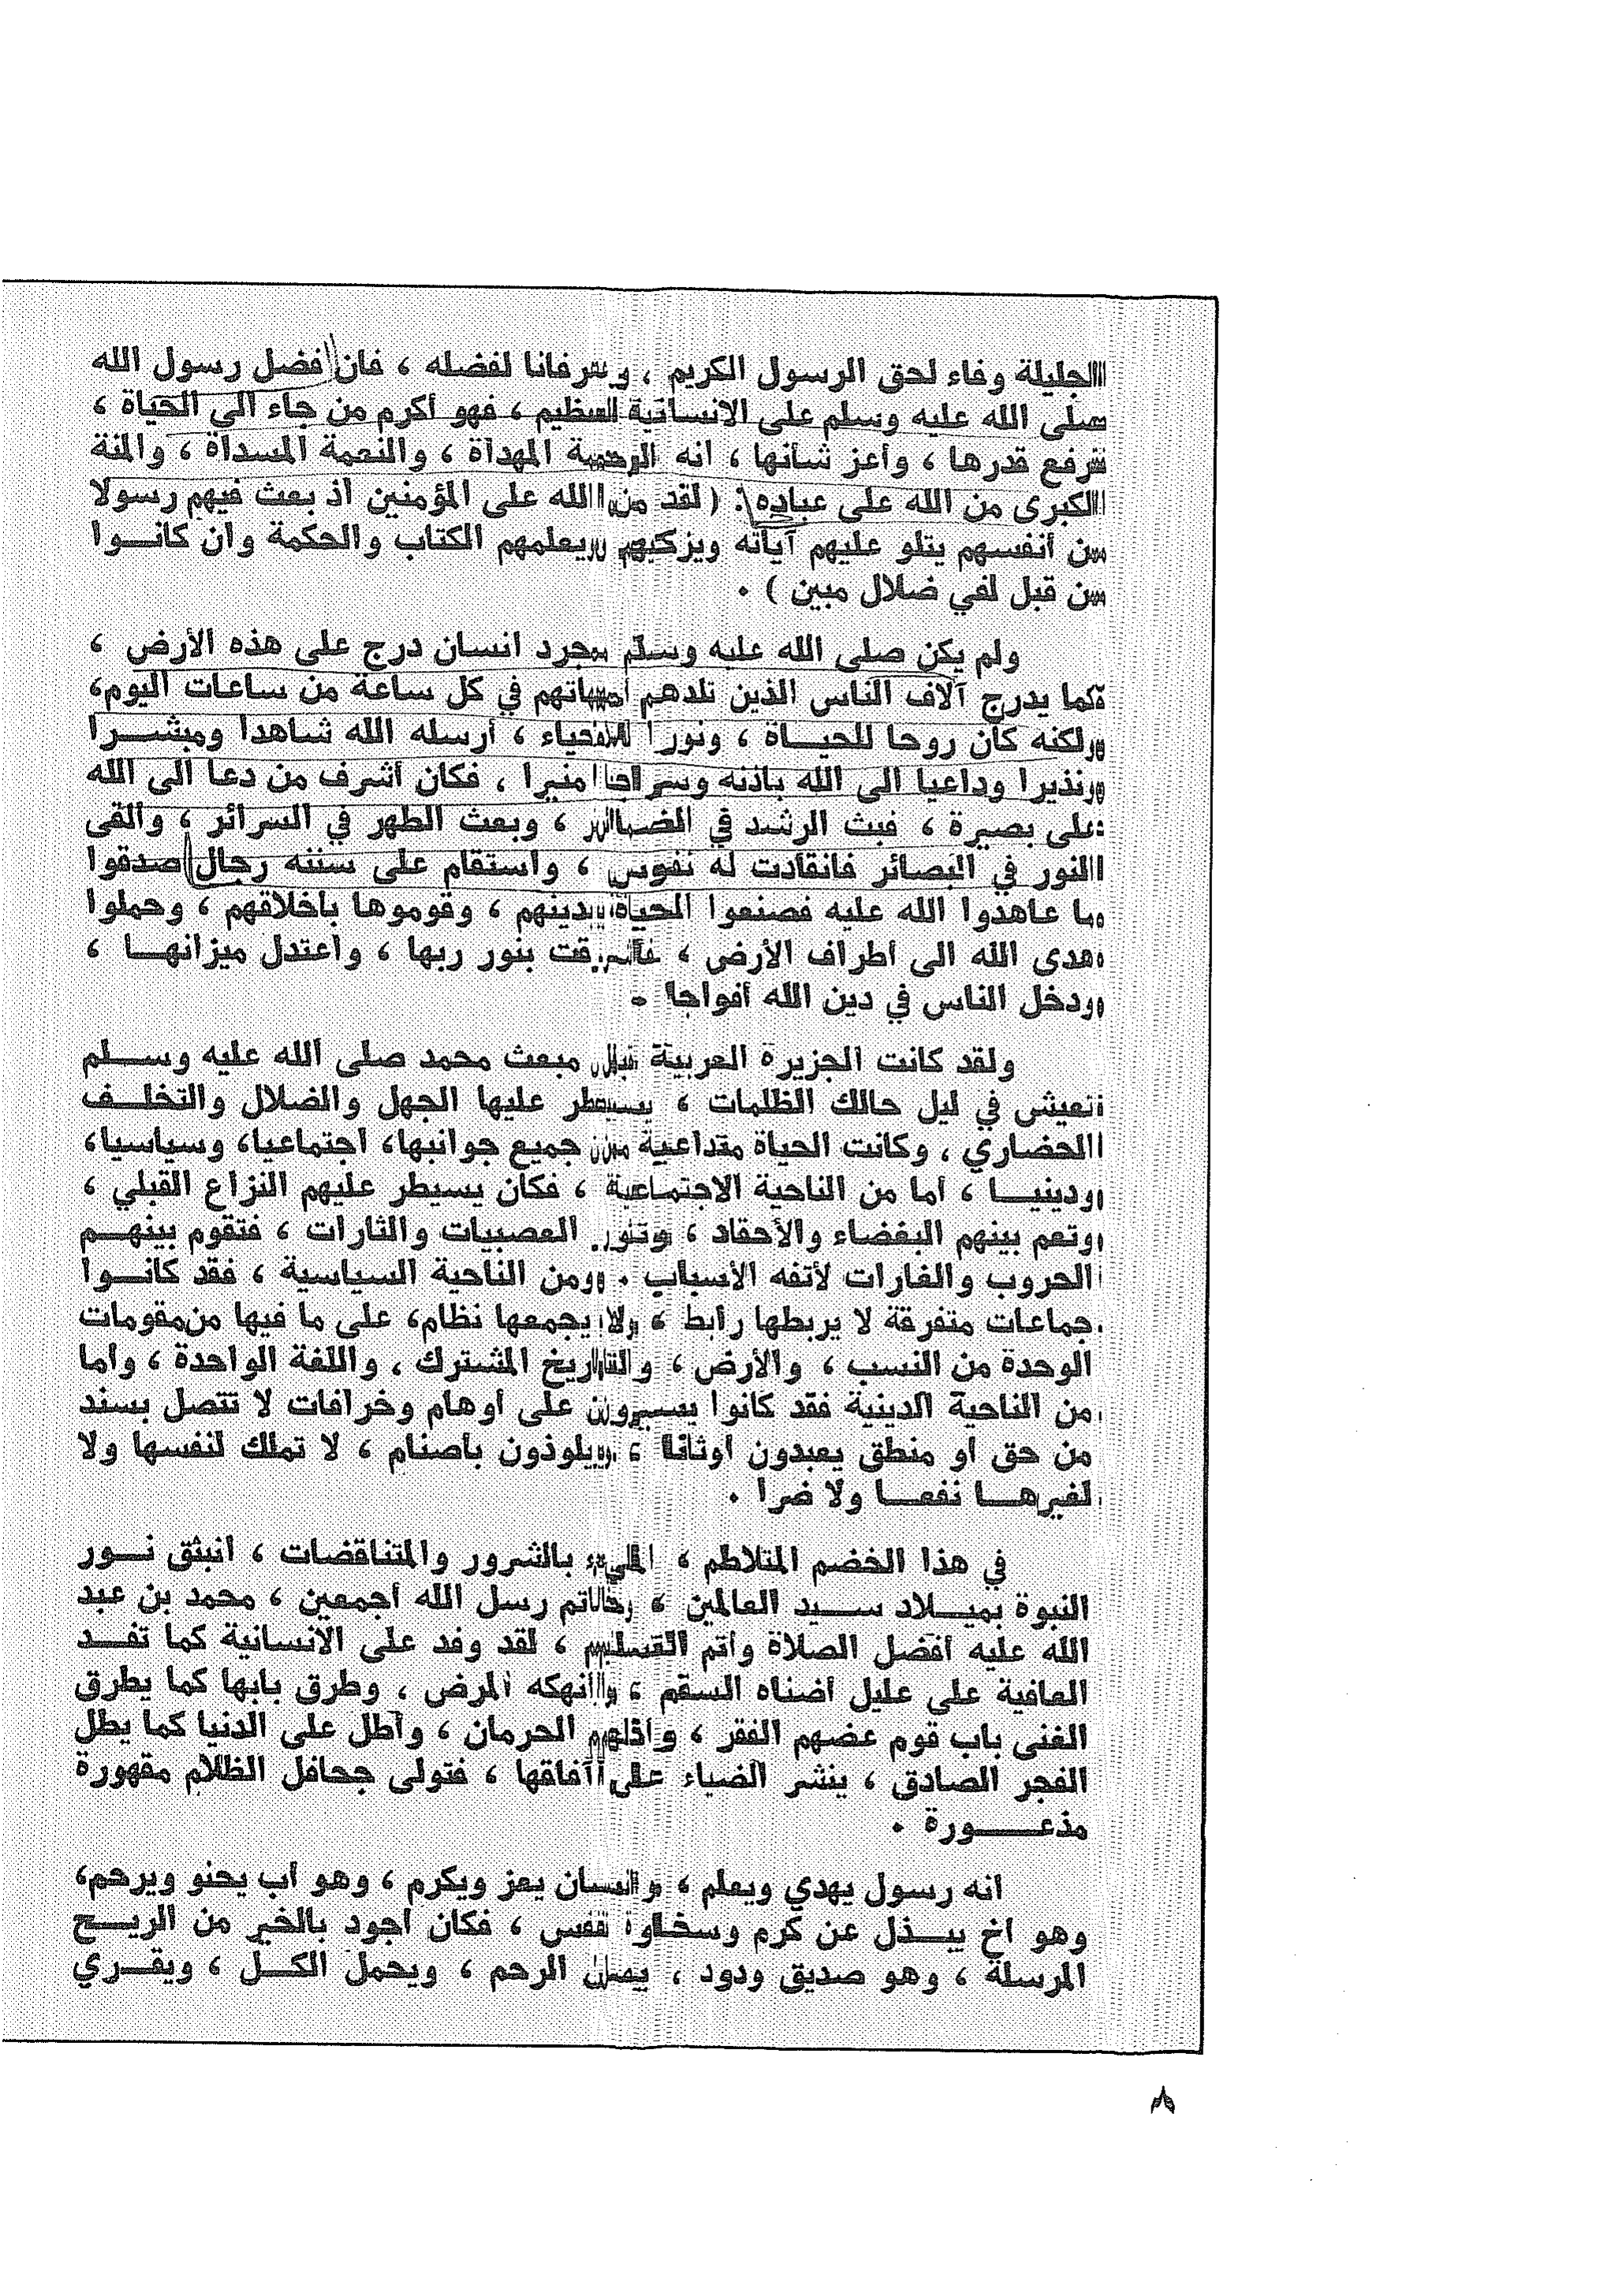 الجليلة وفاء لحق الرسول الكريم ، وعرفانا لفضله ، فان فضل رسول الله
صلى الله عليه وسلم على الانسانية العظيم ، فهو أكرم من جاء الى الحياة ،
فرفع قدرها ، وأعز شأنها ، انه الرحمة المهداة ، والنعمة المسداة ، والمنة
الكبرى من الله على عباده : ( لقد من الله على المؤمنين اذ بعث فيهم رسولا
من أنفسهم يتلو عليهم آياته ويزكيهم ويعلمهم الكتاب والحكمة وان كانــوا
من قبل لفي ضلال مبين ) .
ولم يكن صلى الله عليه وسلم مجرد انسان درج على هذه الأرض ،
كما يدرج آلاف الناس الذين تلدهم أمهاتهم في كل ساعة من ساعات اليوم،
ولكنه كان روحا للحيــاة ، ونورا للأحياء ، أرسله الله شاهدا ومبشــرا
ونذيرا وداعيا الى الله باذنه وسراجا منيرا ، فكان أشرف من دعا الى الله
على بصيرة ، فبث الرشد في الضمائر ، وبعث الطهر في السرائر ، وألقى
النور في البصائر فانقادت له نفوس ، واستقام على سنته رجال صدقوا
ما عاهدوا الله عليه فصنعوا الحياة بدينهم ، وقوموها بأخلاقهم ، وحملوا
هدى الله الى أطراف الأرض ، فأشرقت بنور ربها ، واعتدل ميزانهــا ،
ودخل الناس في دين الله أفواجا .
ولقد كانت الجزيرة العربية قبل مبعث محمد صلى الله عليه وســلم
تعيش في ليل حالك الظلمات ، يسيطر عليها الجهل والضلال والتخلــف
الحضاري ، وكانت الحياة متداعية من جميع جوانبها، اجتماعيا، وسياسيا،
ودينيــا ، أما من الناحية الاجتماعية ، فكان يسيطر عليهم النزاع القبلي ،
وتعم بينهم البغضاء والأحقاد ، وتثور العصبيات والثارات ، فتقوم بينهــم
الحروب والغارات لأتفه الأسباب . ومن الناحية السياسية ، فقد كانــوا
جماعات متفرقة لا يربطها رابط ، ولا يجمعها نظام، على ما فيها من مقومات
الوحدة من النسب ، والأرض ، والتاريخ المشترك ، واللغة الواحدة ، وأما
من الناحية الدينية فقد كانوا يسيرون على أوهام وخرافات لا تتصل بسند
من حق أو منطق يعبدون أوثانا ، ويلوذون بأصنام ، لا تملك لنفسها ولا
لغيرهــا نفعــا ولا ضرا .
في هذا الخضم المتلاطم ، المليء بالشرور والمتناقضات ، انبثق نــور
النبوة بميــلاد ســيد العالمين ، وخاتم رسل الله أجمعين ، محمد بن عبد
الله عليه أفضل الصلاة وأتم التسليم ، لقد وفد على الانسانية كما تفــد
العافية على عليل أضناه السقم ، وأنهكه المرض ، وطرق بابها كما يطرق
الغنى باب قوم عضهم الفقر ، وأذلهم الحرمان ، وأطل على الدنيا كما يطل
الفجر الصادق ، ينشر الضياء على آفاقها ، فتولى جحافل الظلام مقهورة
مذعــــورة .
انه رسول يهدي ويعلم ، وانسان يعز ويكرم ، وهو أب يحنو ويرحم،
وهو أخ يبــذل عن كرم وسخاوة نفس ، فكان أجود بالخير من الريــح
المرسلة ، وهو صديق ودود ، يصل الرحم ، ويحمل الكــل ، ويقــري
٨